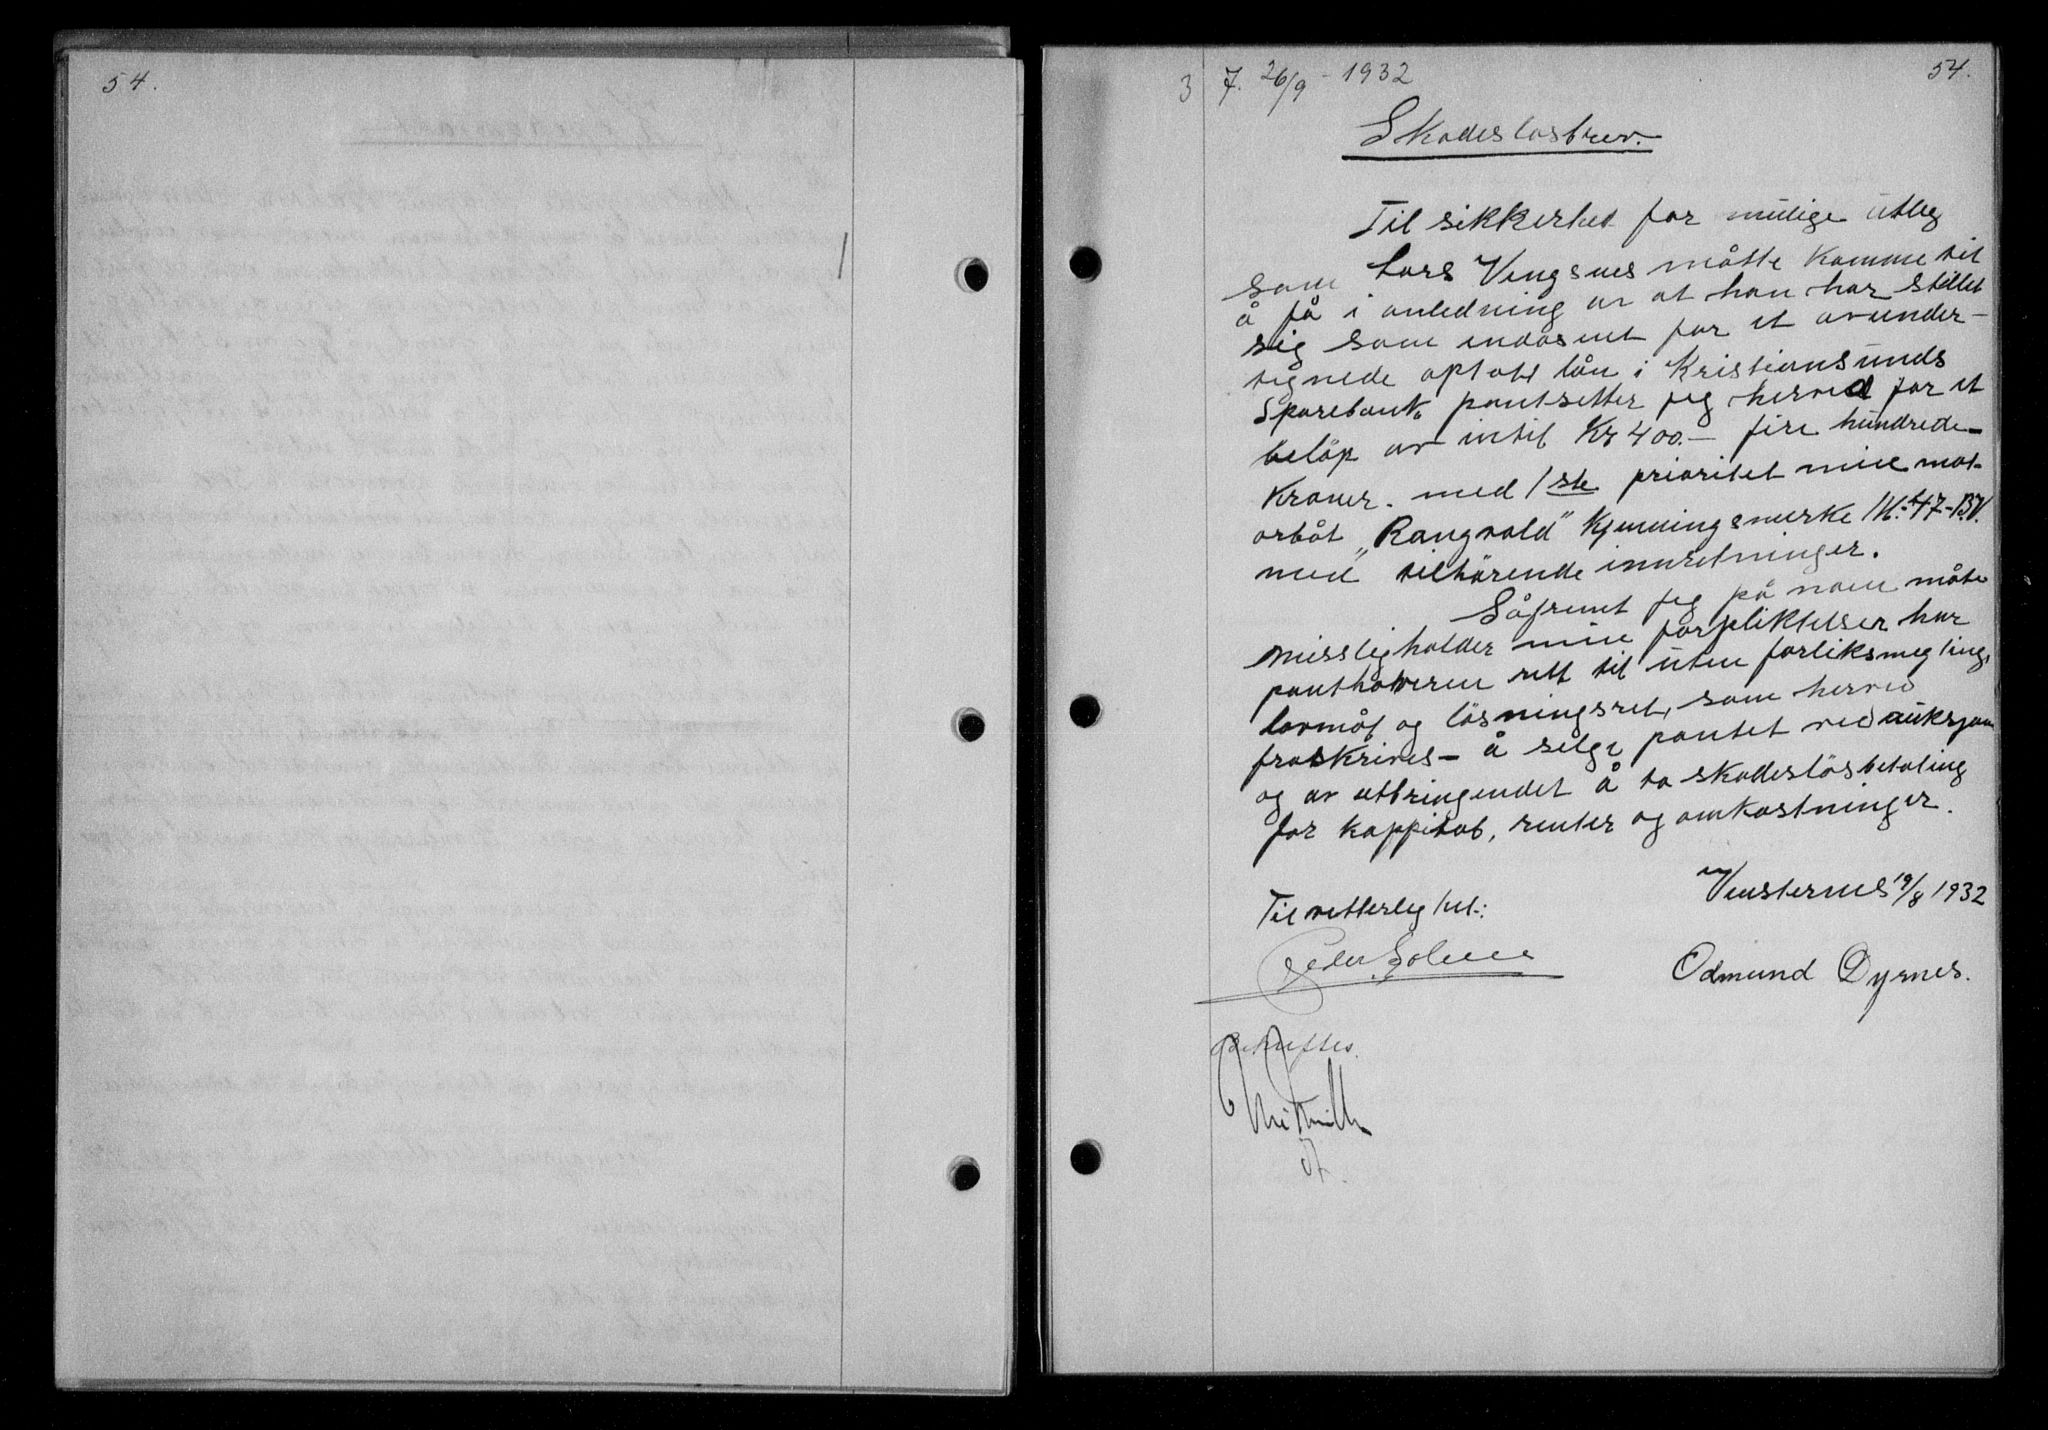 54.
3 7. 26/9 - 1932
54.
Skadeslösbrev.
Til sikkerhet for mulige utleg
som Lars Vengsnes måtte komme til
å få i anledning av at han har stillet
sig som endosent for et avunder-
tegnede optatt lån i Kristiansunds
Sparebank pantsetter jeg herved for et
belöp av intil Kr 400.- fire hundrede-
Kroner. med 1ste prioritet min mot-
orbåt "Rangvald" Kjenningsmerke M.-47-B.V.
med tilhörende innretninger.
Såfremt jeg på noen måte
missligholder mine forpliktelser har
panthaveren rett til uten forliksmegling,
lovmål og lösningsret, som herved
fraskrives - å selge pantet ved auksjon
og av utbringendet å ta skadeslösbetaling
for kappital, renter og omkostninger.
Vensternes 19/8 1932
Til vitterlighet:
Peder Solem
Odmund Dyrnes.
Bekreftes.